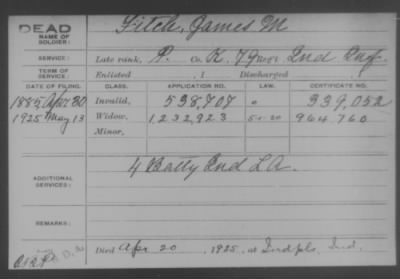 DEAD
NAME OF SOLDIER:
Fitch, James M
SERVICE:
Late rank, P. Co. K, 79 Reg't Ind Inf.
TERM OF SERVICE:
Enlisted , 1 Discharged
DATE OF FILING. CLASS. APPLICATION NO. LAW. CERTIFICATE NO.
1885 Apr 30 Invalid, 538,707 339,052
1925 May 13 Widow, 1,232,923 5-1-20 964,760
Minor,
ADDITIONAL SERVICES:
4 Batty Ind L A.
REMARKS:
Died Apr 20 , 1925, at Indpls Ind.